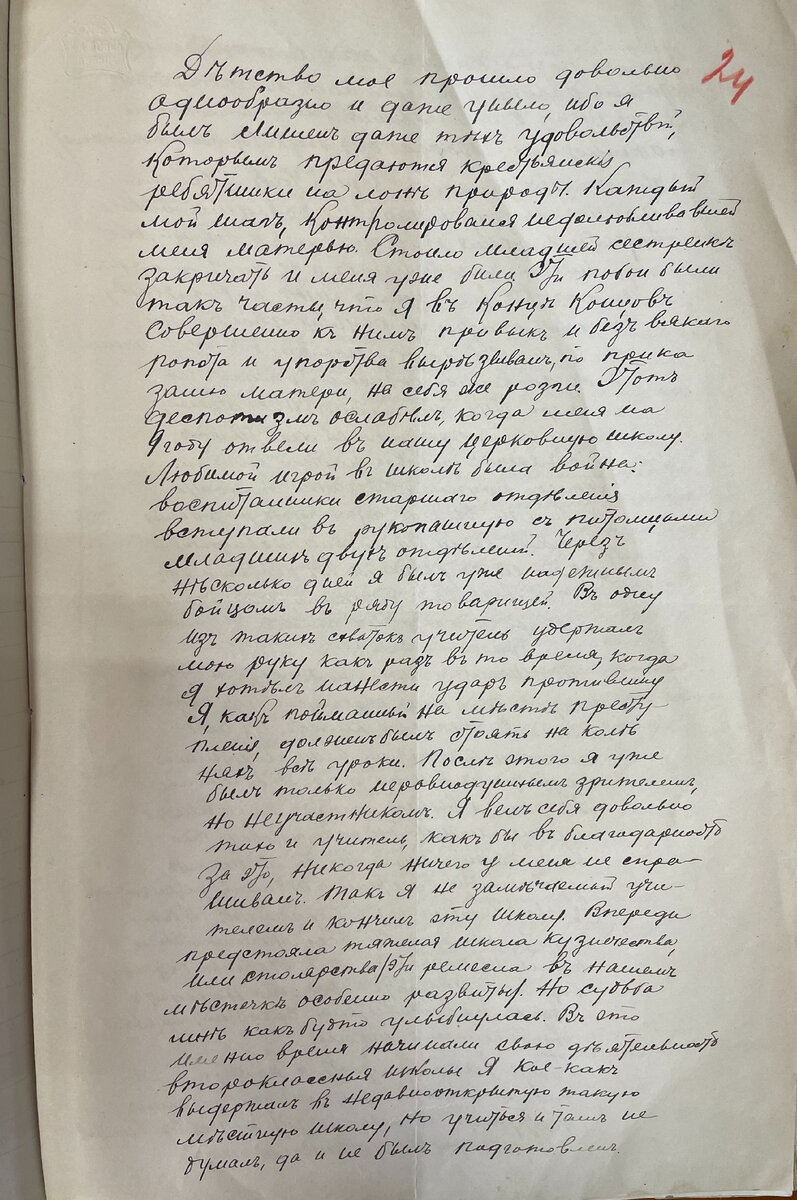 24
Дѣтство мое прошло довольно
однообразно и даже уныло, ибо я
былъ лишенъ даже тѣхъ удовольствій,
которымъ предаются крестьянскіе
ребятишки на лонѣ природы. Каждый
мой шагъ, контролировался недолюбливавшей
меня матерью. Стоило младшей сестренкѣ
закричать и меня уже били. Эти побои были
такъ часты, что я въ концѣ концовъ
совершенно къ нимъ привыкъ и безъ всякаго
ропота и упорства вырѣзывалъ, по прика
занію матери, на себя же розги. Этотъ
деспотизмъ ослабѣлъ, когда меня на
9 году отвели въ нашу церковную школу.
Любимой игрой въ школѣ была война:
воспитанники старшаго отдѣленія
вступали въ рукопашную съ питомцами
младшихъ двухъ отдѣленій. Черезъ
нѣсколько дней я былъ уже надежнымъ
бойцомъ въ ряду товарищей. Въ одну
изъ такихъ схватокъ учитель удержалъ
мою руку какъ разъ въ то время, когда
я хотѣлъ нанести ударъ противнику
Я, какъ пойманный на мѣстѣ престу
пленія, долженъ былъ стоять на колѣ
няхъ всѣ уроки. Послѣ этого я уже
былъ только неравнодушнымъ зрителемъ,
но не участникомъ. Я велъ себя довольно
тихо и учитель, какъ бы въ благодарность
за это, никогда ничего у меня не спра-
шивалъ. Такъ я не замѣчаемый учи-
телемъ и кончилъ эту школу. Впереди
предстояла тяжелая школа кузнечества,
или столярства /эти ремесла въ нашемъ
мѣстечкѣ особенно развиты/. Но судьба
мнѣ какъ будто улыбнулась. Въ это
именно время начинали свою дѣятельность
второклассныя школы. Я кое-какъ
выдержалъ въ недавно открытую такую
мѣстную школу, но учиться и тамъ не
думалъ, да и не былъ подготовленъ.